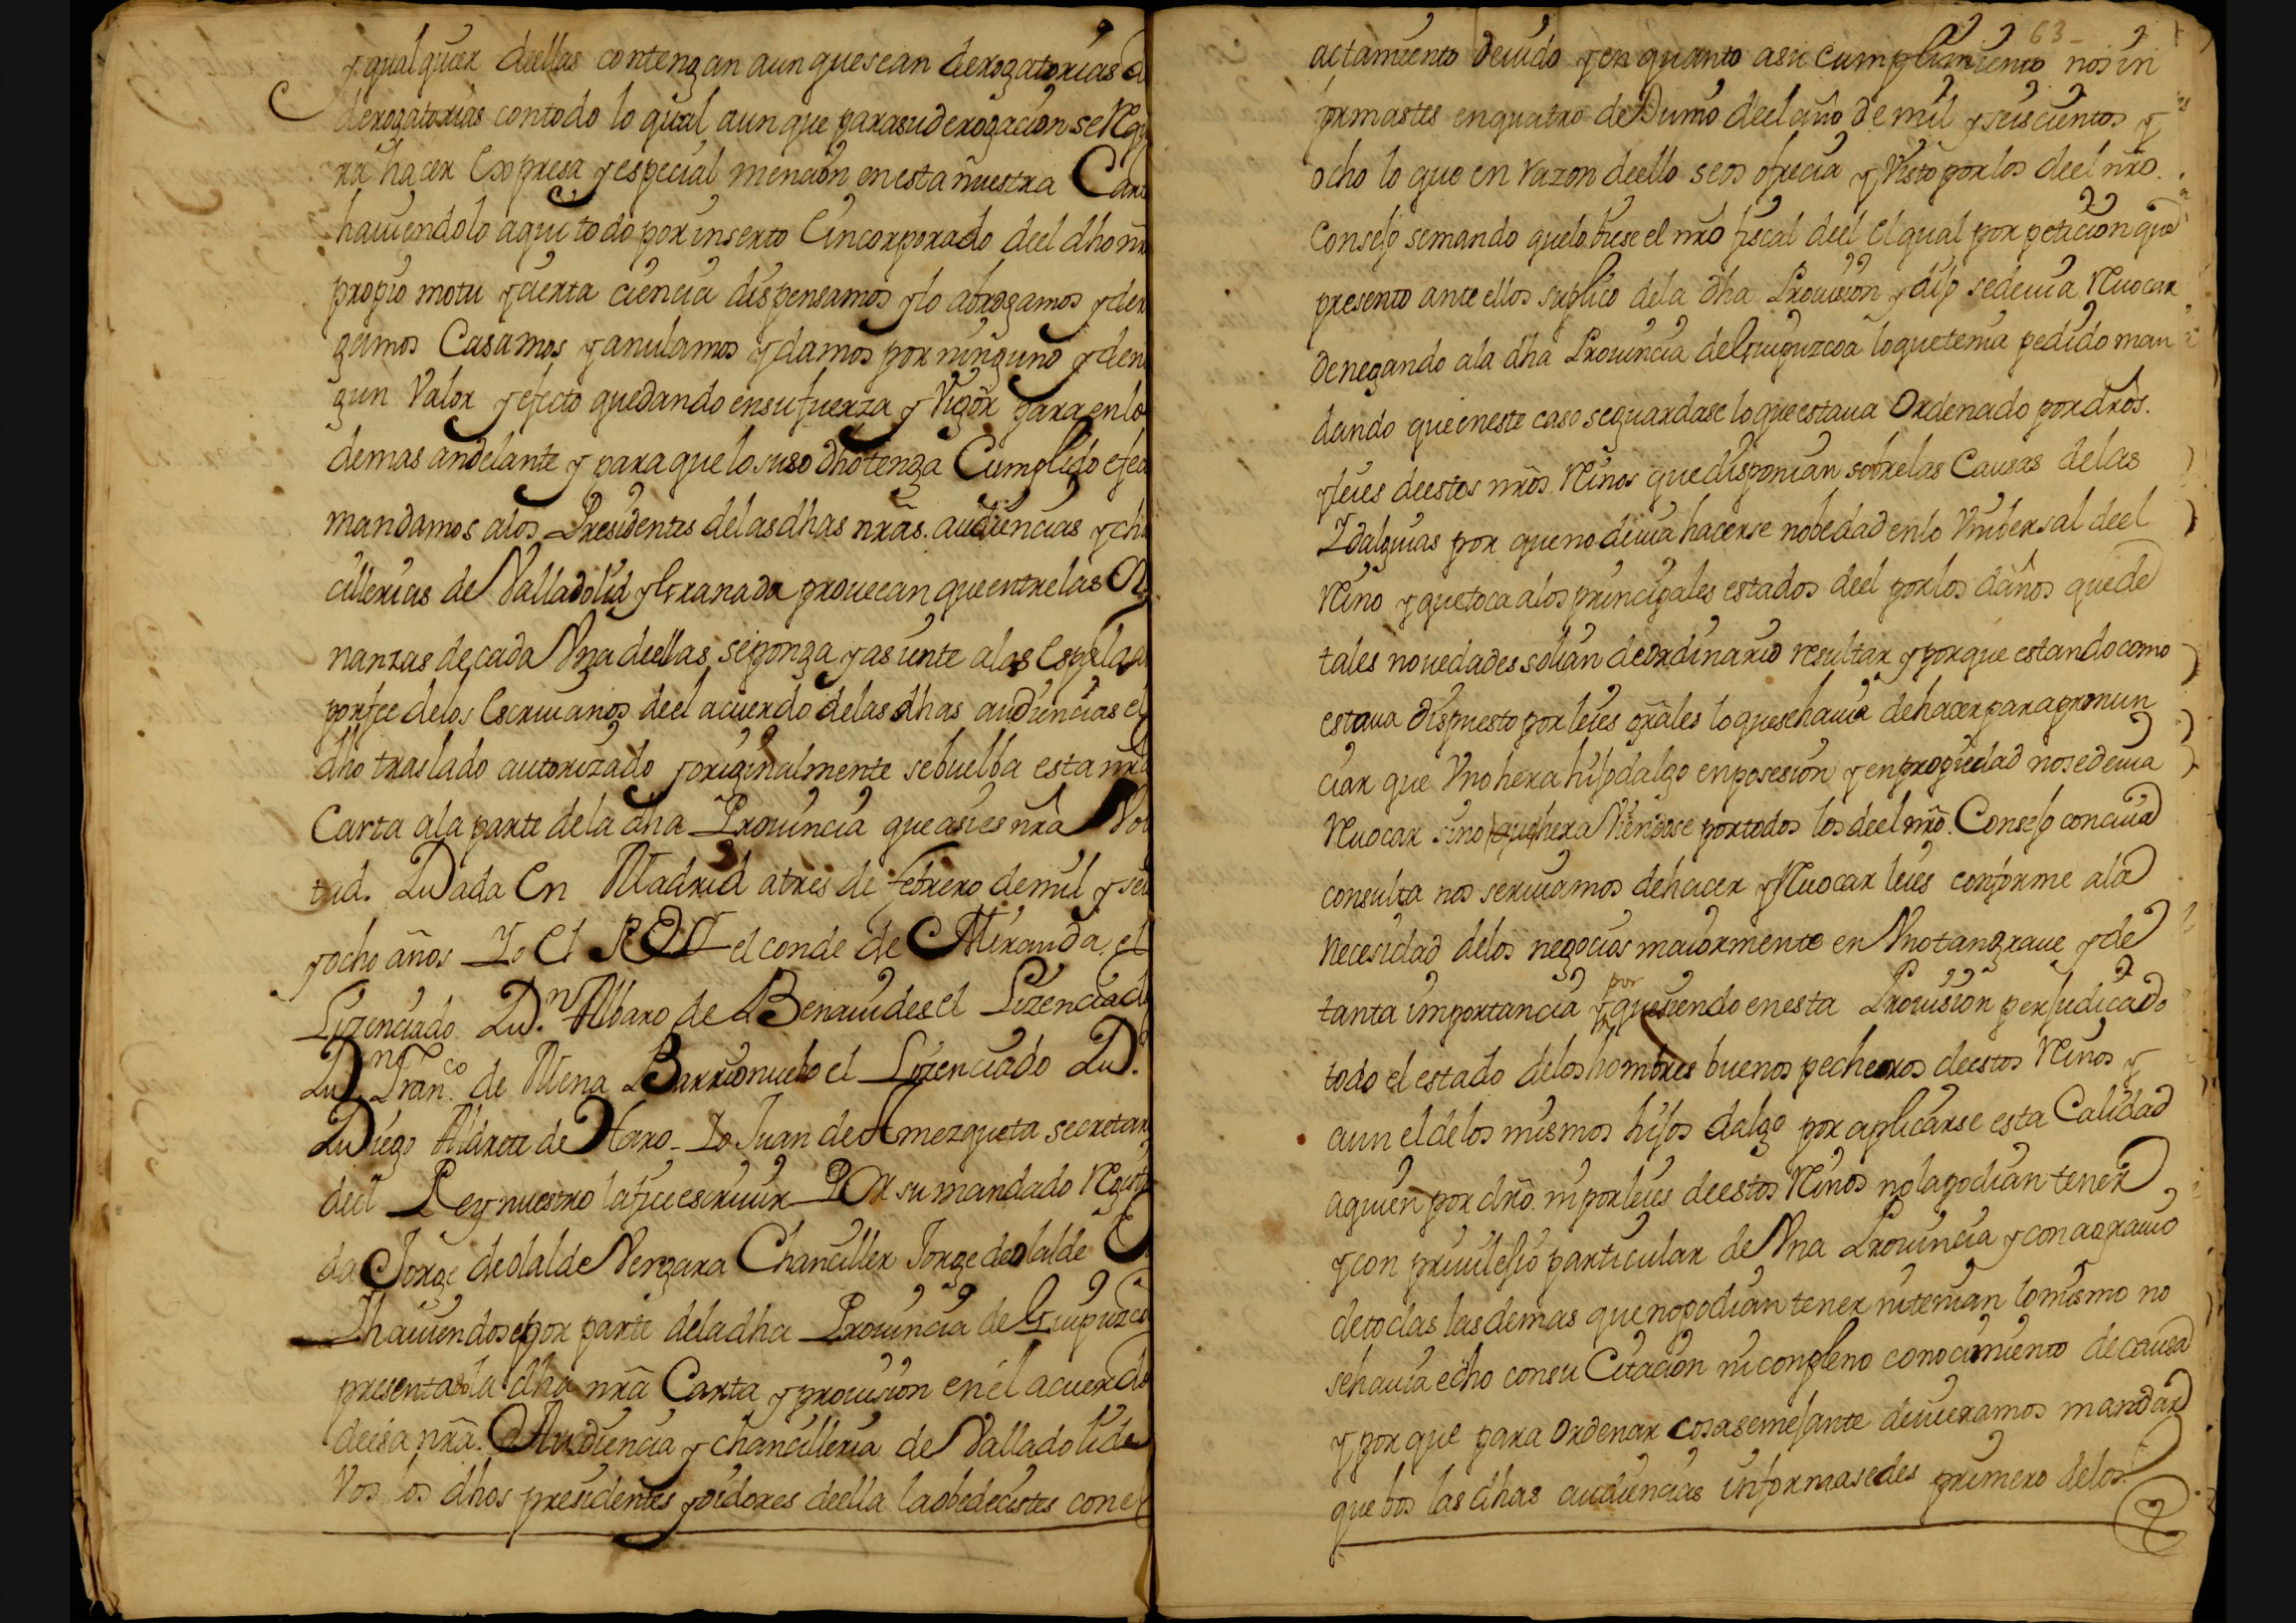 y qualquier deellas contengan aunque sean derogatorias d
derogatorias con todo lo qual aunque para su derogacion se Requ
ra hacer Expresa y especial mencion en esta nuestra Cart
haviendolo aqui todo por inserto E incorporado deel dho nr
propio motu y cierta ciencia dispensamos y lo abrogamos y der
gamos Casamos y anulamos y damos por ninguno y den
gun Valor y efecto quedando en su fuerza y Vigor para en lo
demas andelante y para que lo suso dho tenga Cumplido efec
mandamos a los Presidentes de las dhas nrãs. audiencias y cha
cillerias de Valladolid y Granada provean que entre las Or
nanzas de cada Vna deellas se ponga y asiente a las Espaldas
por fee de los Escrivanos deel acuerdo de las dhas audiencias el
dho traslado autorizado y originalmente se buelba esta nrã
Carta a la parte de la dha Provincia que asi es nrã Vol
tad. Dada En Madrid a tres de febrero de mil y sei
y ocho años Yo El REY el conde de Miranda el
Lizenciado Dn. Albaro de Benavides el Lizenciado
Dn Franco. de Mena Barrionuebo el Lizenciado D.
Diego Aldrete de Haro - Yo Juan de Amezqueta secretar
deel Rey nuestro la fice escrivir Por su mandado Regist
da Jorge de olalde Vergara Chanciller Jorge de olalde
Y haviendose por parte de la dha Provincia de Guipuzco
presentado la dha nrã Carta y provision en él acuerdo
de esa nrã. Audiencia y chancilleria de Valladolid
Vos los dhos presidentes y oidores deella la obedecistes con el
63
actamiento devido y en quanto a su cumplimiento nos in
formastes en quatro de Junio deel año de mil y seiscientos y
ocho lo que en razon deello se os ofrecia y Visto por los deel nrõ.
Consejo se mando que lo biese el nrõ fiscal deel El qual por peticion que
presento ante ellos suplico de la dha Provision y dijo se devia Revocar
denegando a la dha Provincia de Guipuzcoa lo que tenia pedido man
dando que en este caso se guardase lo que estava Ordenado por drõs.
y leies deestos nrõs. Reinos que disponian sobre las Causas de las
Idalguias por que no devia hacerse nobedad en lo Vnibersal deel
Reino y que toca a los principales estados deel por los daños que de
tales novedades solian de ordinario resultar y porque estando como
estava dispuesto por leies grãles lo que se havia de hacer para pronun
ciar que Vno hera hijodalgo en posesion y en propiedad no se devia
Revocar sino que hera Viendose por todos los deel nrõ. Consejo con cuia
consulta nos serviamos de hacer y Revocar leies conforme a la
necesidad de los negocios maiormente en Vno tan grave y de
tanta importancia y por que siendo en esta Provision perjudicado
todo el estado de los hombres buenos pecheros deestos Reinos y
aun el de los mismos hijos dalgo por aplicarse esta Calidad
a quien por drõ. ni por leies deestos Reinos no la podian tener
y con privilejio particular de Vna Provincia y con agravio
de todas las demas que no podian tener ni tenian lo mismo no
se havia echo con su Citacion ni con pleno conocimiento de causa
y por que para Ordenar cosa semejante devieramos mandar
que bos las dhas audiencias informasedes primero de los